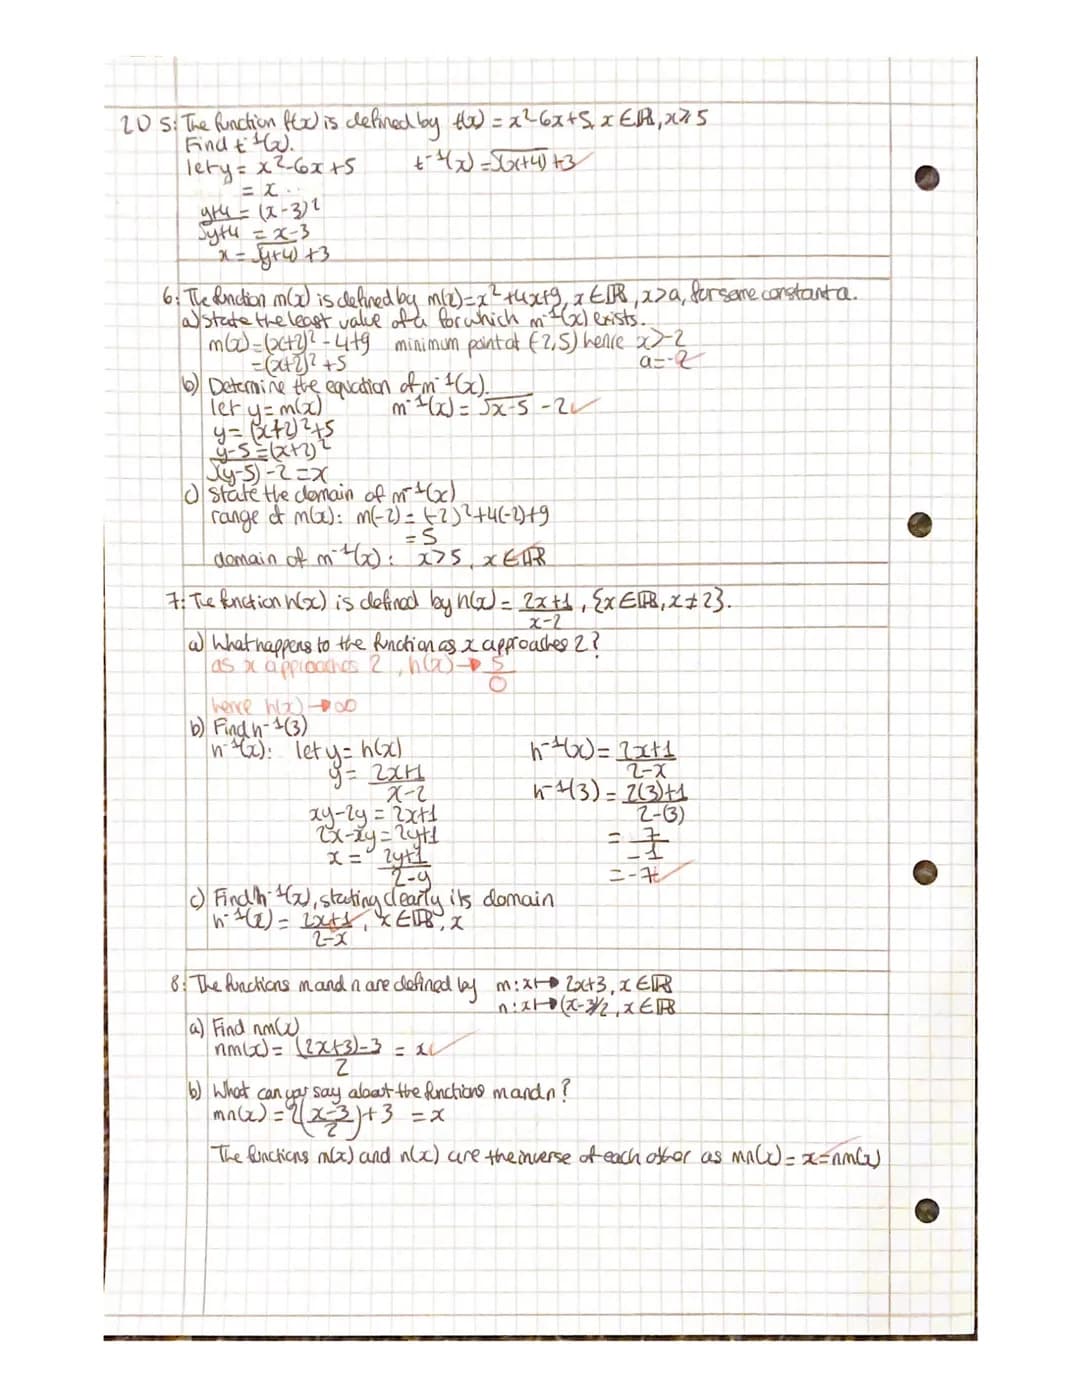 2D 5: The function t(x) is defined by t(x) = x²-6x+5, x∈ℝ, x≥5
Find t⁻¹(x).
let y = x²-6x+5    t⁻¹(x) = √(x+4) +3
= x
y+4 = (x-3)²
√y+4 = x-3
x = √(y+4) +3
6: The function m(x) is defined by m(x)=x²+4x+9, x∈ℝ, x>a, for some constant a.
a) State the least value of a for which m⁻¹(x) exists.
m(x)=(x+2)²-4+9    minimum point at (-2,5) hence x>-2
=(x+2)²+5    a=-2
b) Determine the equation of m⁻¹(x).
let y=m(x)    m⁻¹(x) = √x-5 -2
y = (x+2)²+5
y-5=(x+2)²
√(y-5) -2 =x
c) State the domain of m⁻¹(x)
range of m(x): m(-2) = (-2)²+4(-2)+9
= 5
domain of m⁻¹(x): x>5, x∈ℝ
7: The function h(x) is defined by h(x) = 2x+1/x-2, {x∈ℝ, x≠2}.
a) What happens to the function as x approaches 2?
as x approaches 2, h(x)→ 5/0
hence h(x)→∞
b) Find h⁻¹(3)
h⁻¹(x): let y = h(x)    h⁻¹(x) = 2x+1/2-x
y = 2x+1/x-2    h⁻¹(3) = 2(3)+1/2-(3)
xy-2y = 2x+1
2x-xy = 2y+1    = 7/-1
x = 2y+1/2-y    =-7
c) Find h⁻¹(x), stating clearly its domain
h⁻¹(x) = 2x+1/2-x, x∈ℝ, x
8: The functions m and n are defined by m:x↦2x+3, x∈ℝ
n:x↦(x-3)/2, x∈ℝ
a) Find nm(x)
nm(x) = (2x+3)-3/2 = x
b) What can you say about the functions m and n?
mn(x) = 2(x-3/2)+3 = x
The functions m(x) and n(x) are the inverse of each other as mn(x) = x = nm(x)